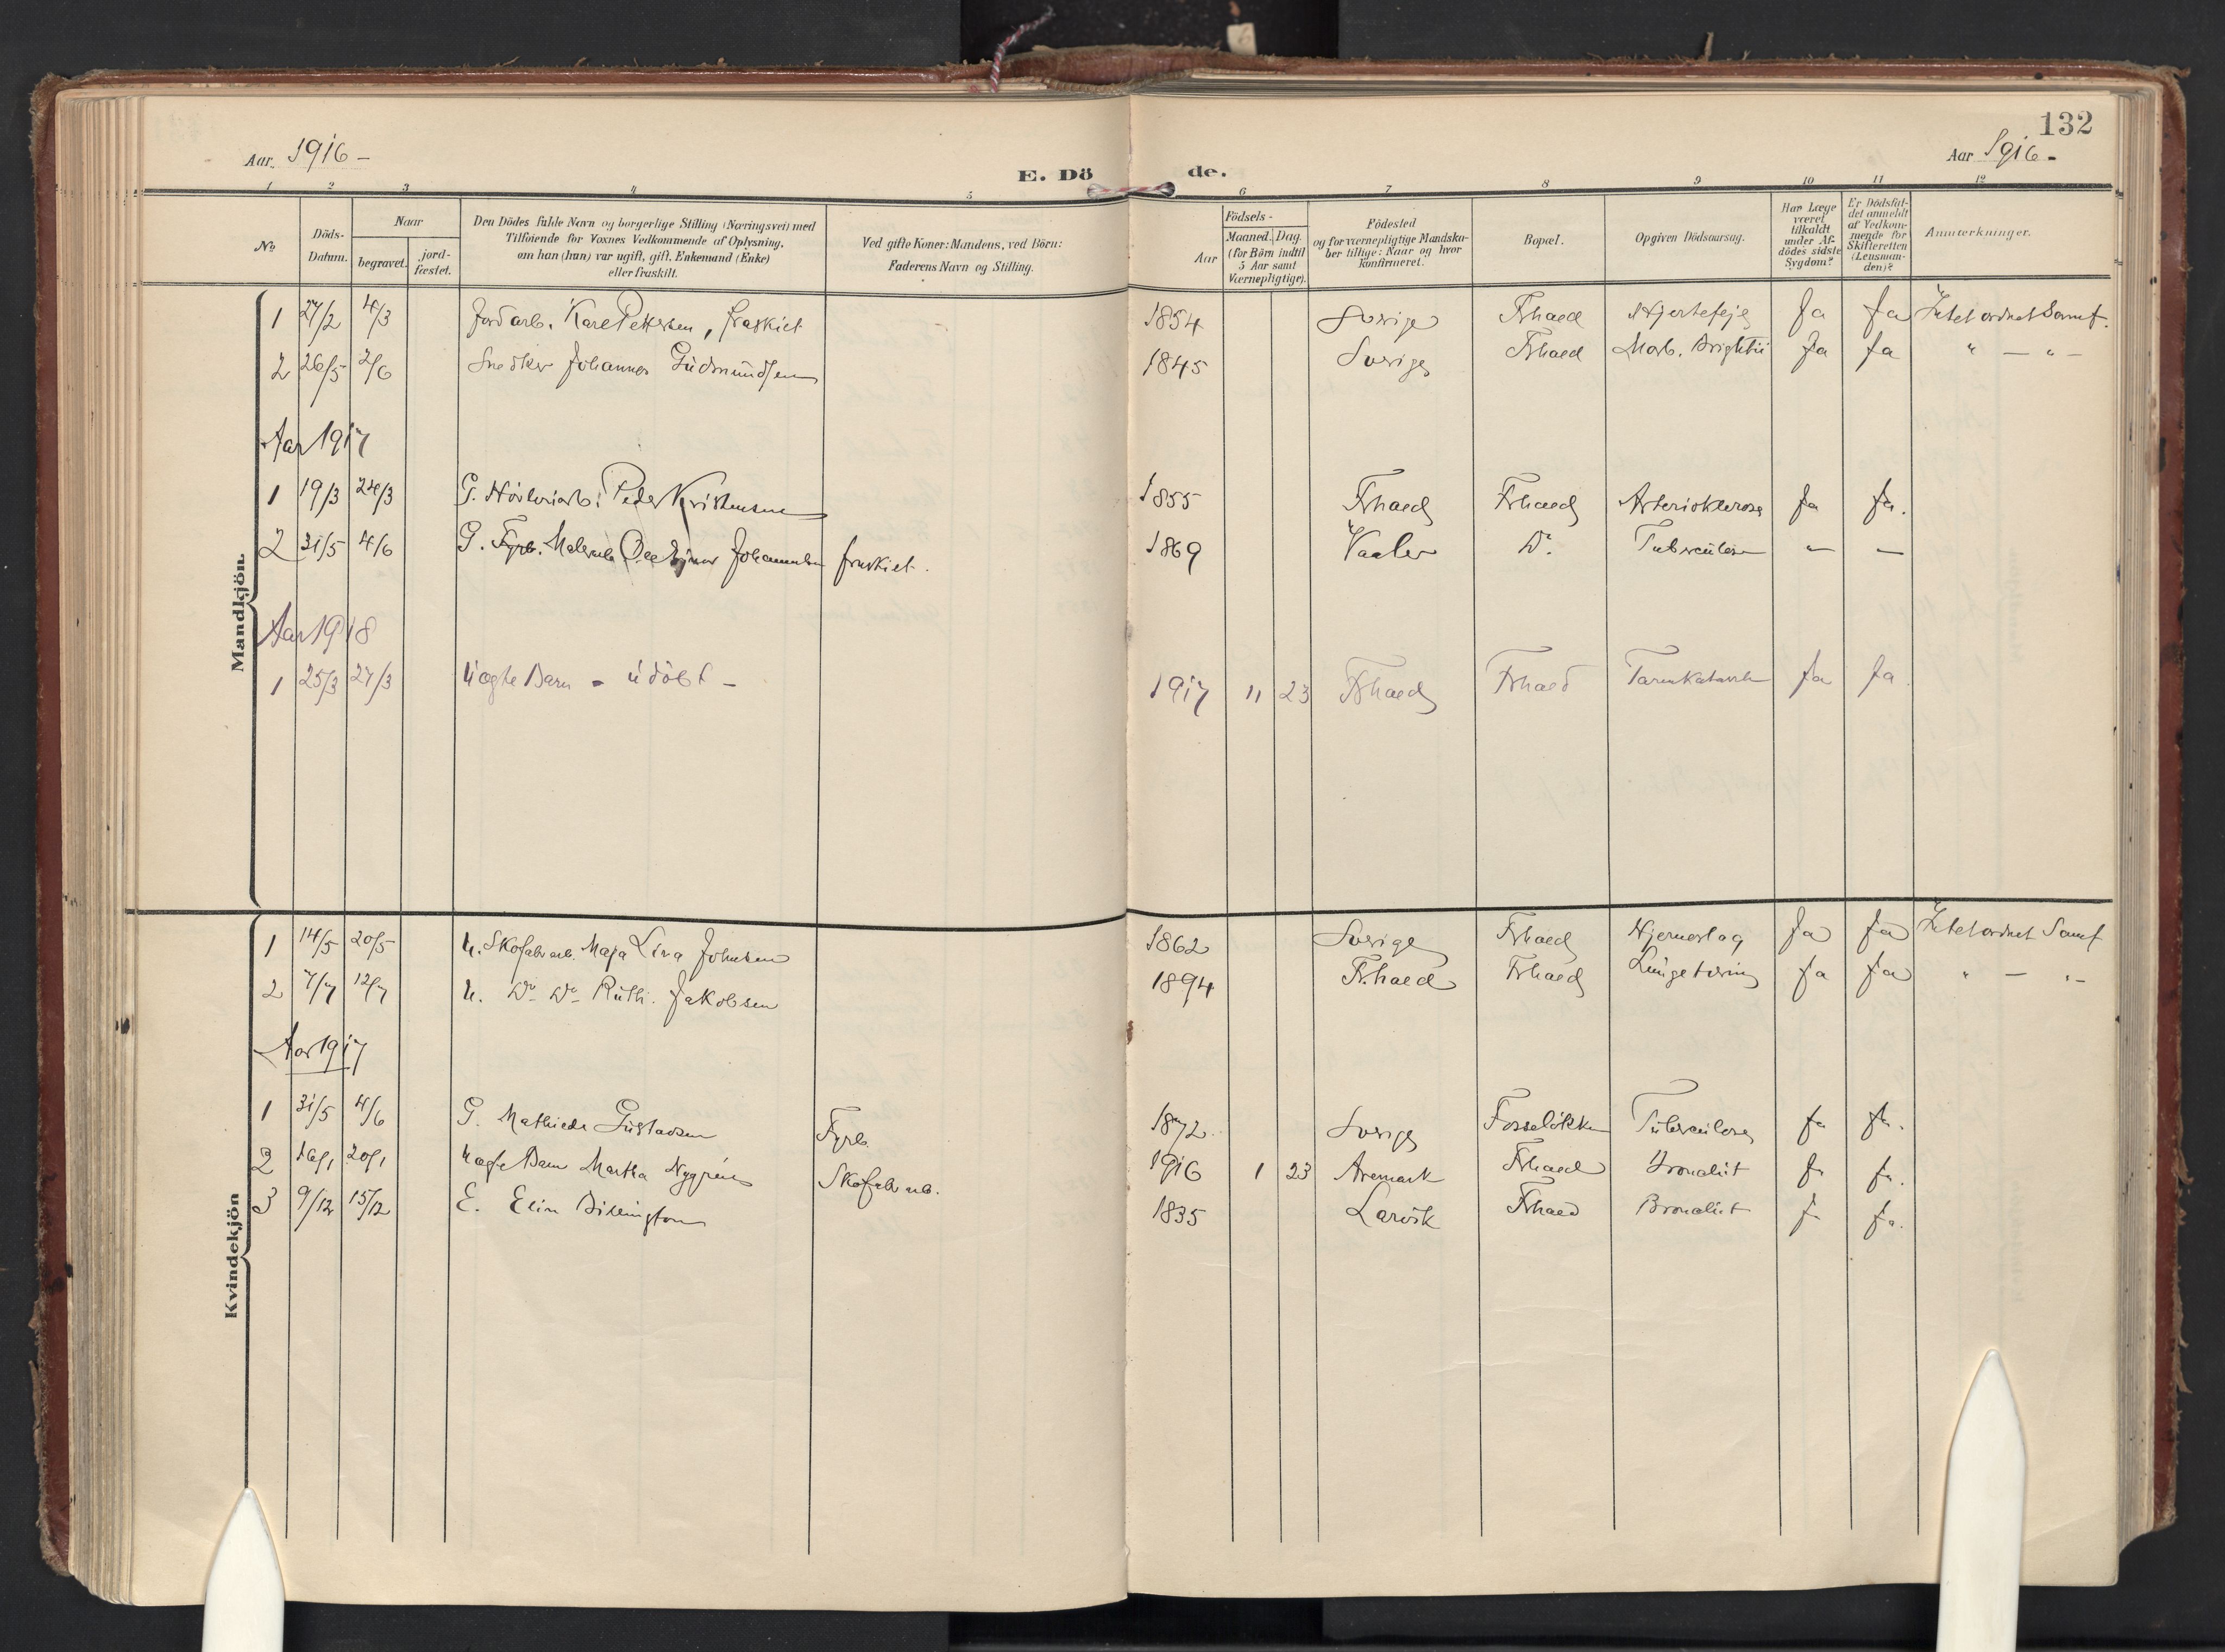 132
Aar 1916 -
Aar 1916 -
E. Dö de.
1 2 3 4 5 6 7 8 9 10 11 12
No. Döds-Datum. Naar begravet. jord-fæstet. Den Dödes fulde Navn og borgerlige Stilling (Næringsvei) med Tilföiende for Voxnes Vedkommende af Oplysning, om han (hun) var ugift, gift, Enkemand (Enke) eller fraskilt. Ved gifte Koner: Mandens, ved Börn: Faderens Navn og Stilling. Födsels- Aar Maaned. Dag. (for Börn indtil 5 Aar samt Værnepligtige). Födested og for værnepligtige Mandskaber tillige: Naar og hvor konfirmeret. Bopæl. Opgiven Dödsaarsag. Har Læge været tilkaldt under Afdödes sidste Sygdom? Er Dödsfaldet anmeldt af Vedkommende for Skifteretten (Lensmanden)? Anmerkninger.
Mandkjön.
1 27/2 4/3 Jordarb. Karl Pettersen, fraskilt 1854 Sverige Frhald Hjertefejl Ja Ja Intet ordnet Samf.
2 26/5 2/6 Snedker Johannes Gudmundsen 1845 Sverige Frhald Morb. Brightii Ja Ja " — " —
Aar 1917
1 19/3 24/3 G. Peder Kristensen 1855 Frhald Frhald Arteriosklerose Ja Ja.
2 31/5 4/6 G. Fyrb. Johannesen fraskilt. 1869 Vaaler Do. Tuberculose — —
Aar 1918
1 25/3 27/3 Uægte Barn - udöbt - 1917 11 23 Frhald Frhald Tarmkatarrh Ja Ja
Kvindekjön
1 14/5 20/5 U. Skofabr arb. Maja Lina Johnsen 1862 Sverige Frhald Hjerneslag Ja Ja Intet ordnet Samf
2 7/7 12/7 U. Do Do Ruth Jakobsen 1894 Fr.hald Frhald Lungetæring Ja Ja " — " -
Aar 1917
1 31/5 4/6 G. Mathilde Gustavsen Fyrb. 1872 Sverige Fosselökken Tuberculose Ja Ja.
2 16/1 20/1 Uægte Barn Martha Nygrén Skofabr arb. 1916 1 23 Aremark Frhald Bronchit Ja Ja.
3 9/12 15/12 E. Elin 1835 Larvik Frhald Bronchit Ja Ja.